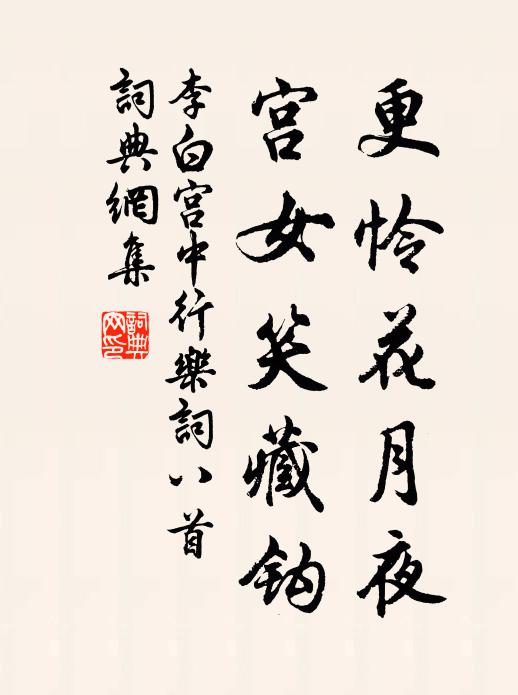 更怜花月夜
宫女笑藏鈎
李白宫中行樂詞八首
詞典網集
詞典
网印